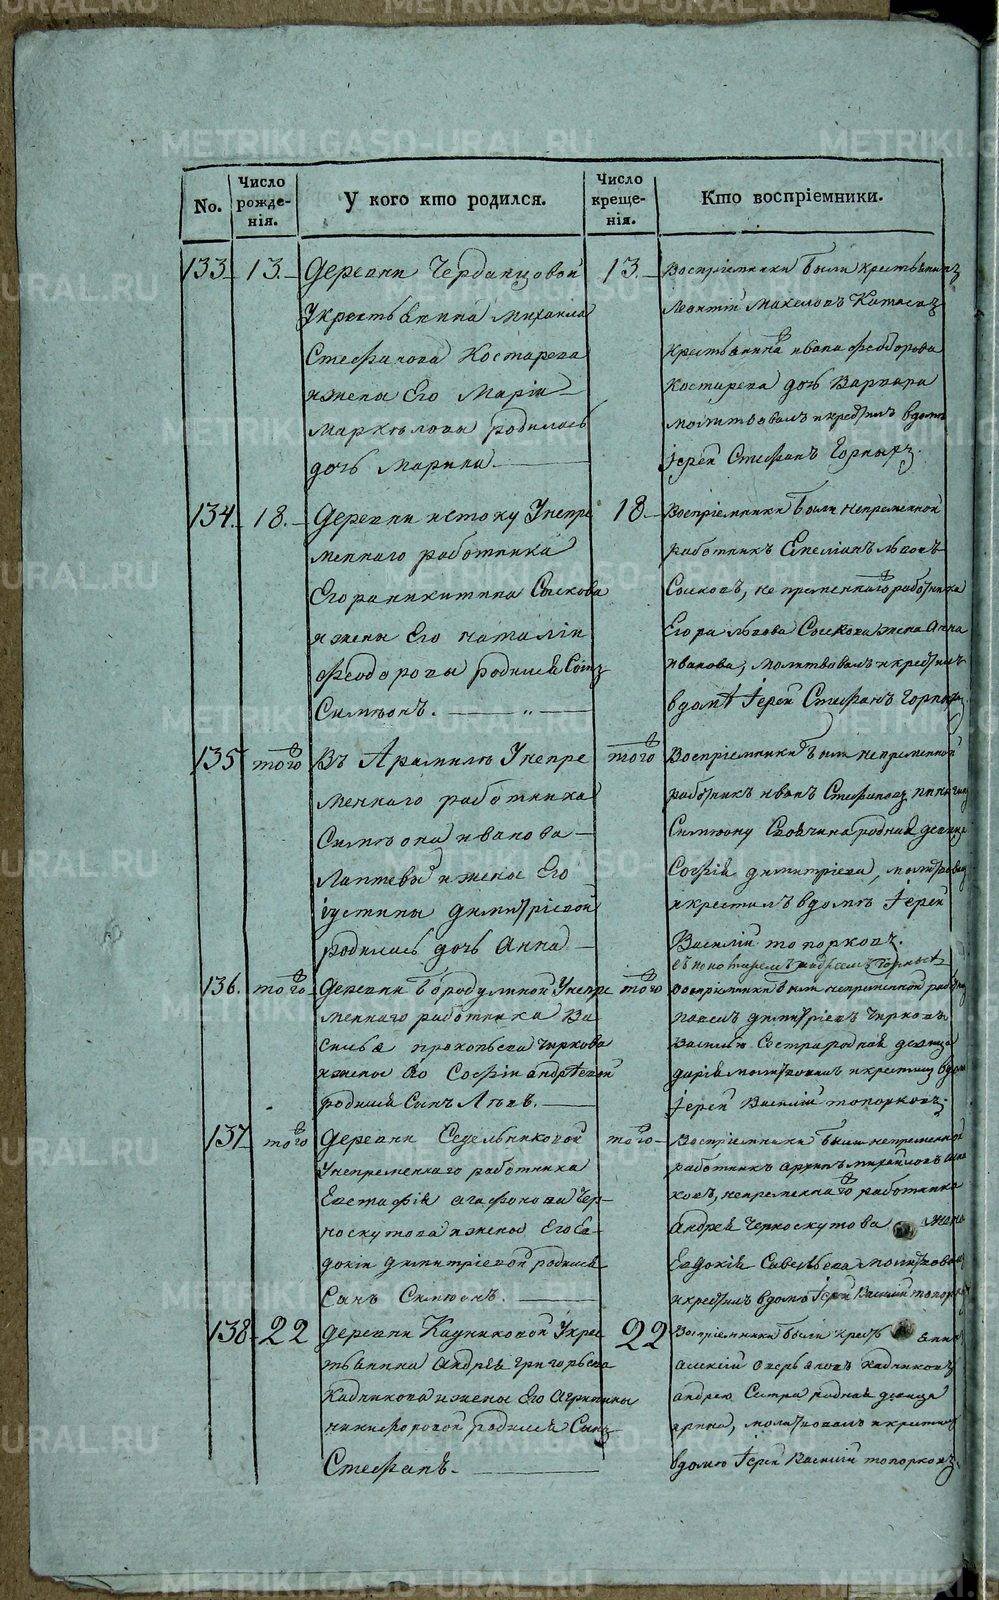 No.
Число рожде-нія.
У кого кто родился.
Число креще-нія.
Кто воспріемники.
133. 13.
Деревни Чердапцовой
У крестьянина Михаила
Стефанова Костарева
и жены Его Маріи
Маркѣловы родилась
дочь Марина.
13.
Воспріемники были крестьянинъ
Леонтій
крестьянина Ивана Феодорова
Костирева дочь Варвара
молитвовалъ и крестилъ в домѣ
Іерей Стефанъ Горныхъ.
134. 18.
Деревни истоку У непре
меннаго работника
Егора никитина Соскова
и жены Его наталіи
Феодоровы родился Сынъ
Симеонъ.
18.
Воспріемники были непременной
работникъ Емеліанъ львовъ
Сосковъ, не пременнаго работника
Егора львова Соскова жена Анна
иванова, молитвовалъ и крестилъ
в домѣ Іерей Стефанъ Горныхъ
135 того
Въ Арамилѣ У непре
меннаго работника
Симеона иванова
Лаптева и жены Его
іустины димитріевой
родилась дочь Анна
того
Воспріемники были непременной
работникъ иванъ Стефановъ
Симеону родная девица
Софія димитріева,
и крестилъ в домѣ Іерей
Василій топорковъ.
136. того
Деревни бородулиной У непре
меннаго работника Ва
силья прокопьева Чиркова
и жены Его Софіи андрѣевой
родился Сынъ Левъ.
того
воспріемники были непременной
павелъ димитріевъ Чирковъ
Василью Сестра родная девица
дарія молитвовалъ и крестилъ в домѣ
Іерей Василій топорковъ.
137 того
Деревни Седельниковой
У непременнаго работника
Евстафія агафонова Чер-
носкутова и жены Его Ев
докіи димитріевой родился
Сынъ Симеонъ.
того
Воспріемники были непременной
работникъ архипъ михайловъ
ковъ, непременнаго работника
Андрея Черноскутова жена
Евдокія Савельева молитвовалъ
и крестилъ в домѣ Іерей Василій топорковъ
138 22
деревни Кадниковой У крес
тьянина Андрея григорьева
Кадникова и жены Его Агрипины
никифоровой родился Сынъ
Стефанъ.
22
Воспріемники были крестьянинъ
алексій аверьяновъ кадниковъ
андрею Сестра родная девица
ирина, молитвовалъ и крестилъ
в домѣ Іерей Василій топорковъ
METRIKI.GASO-URAL.RU